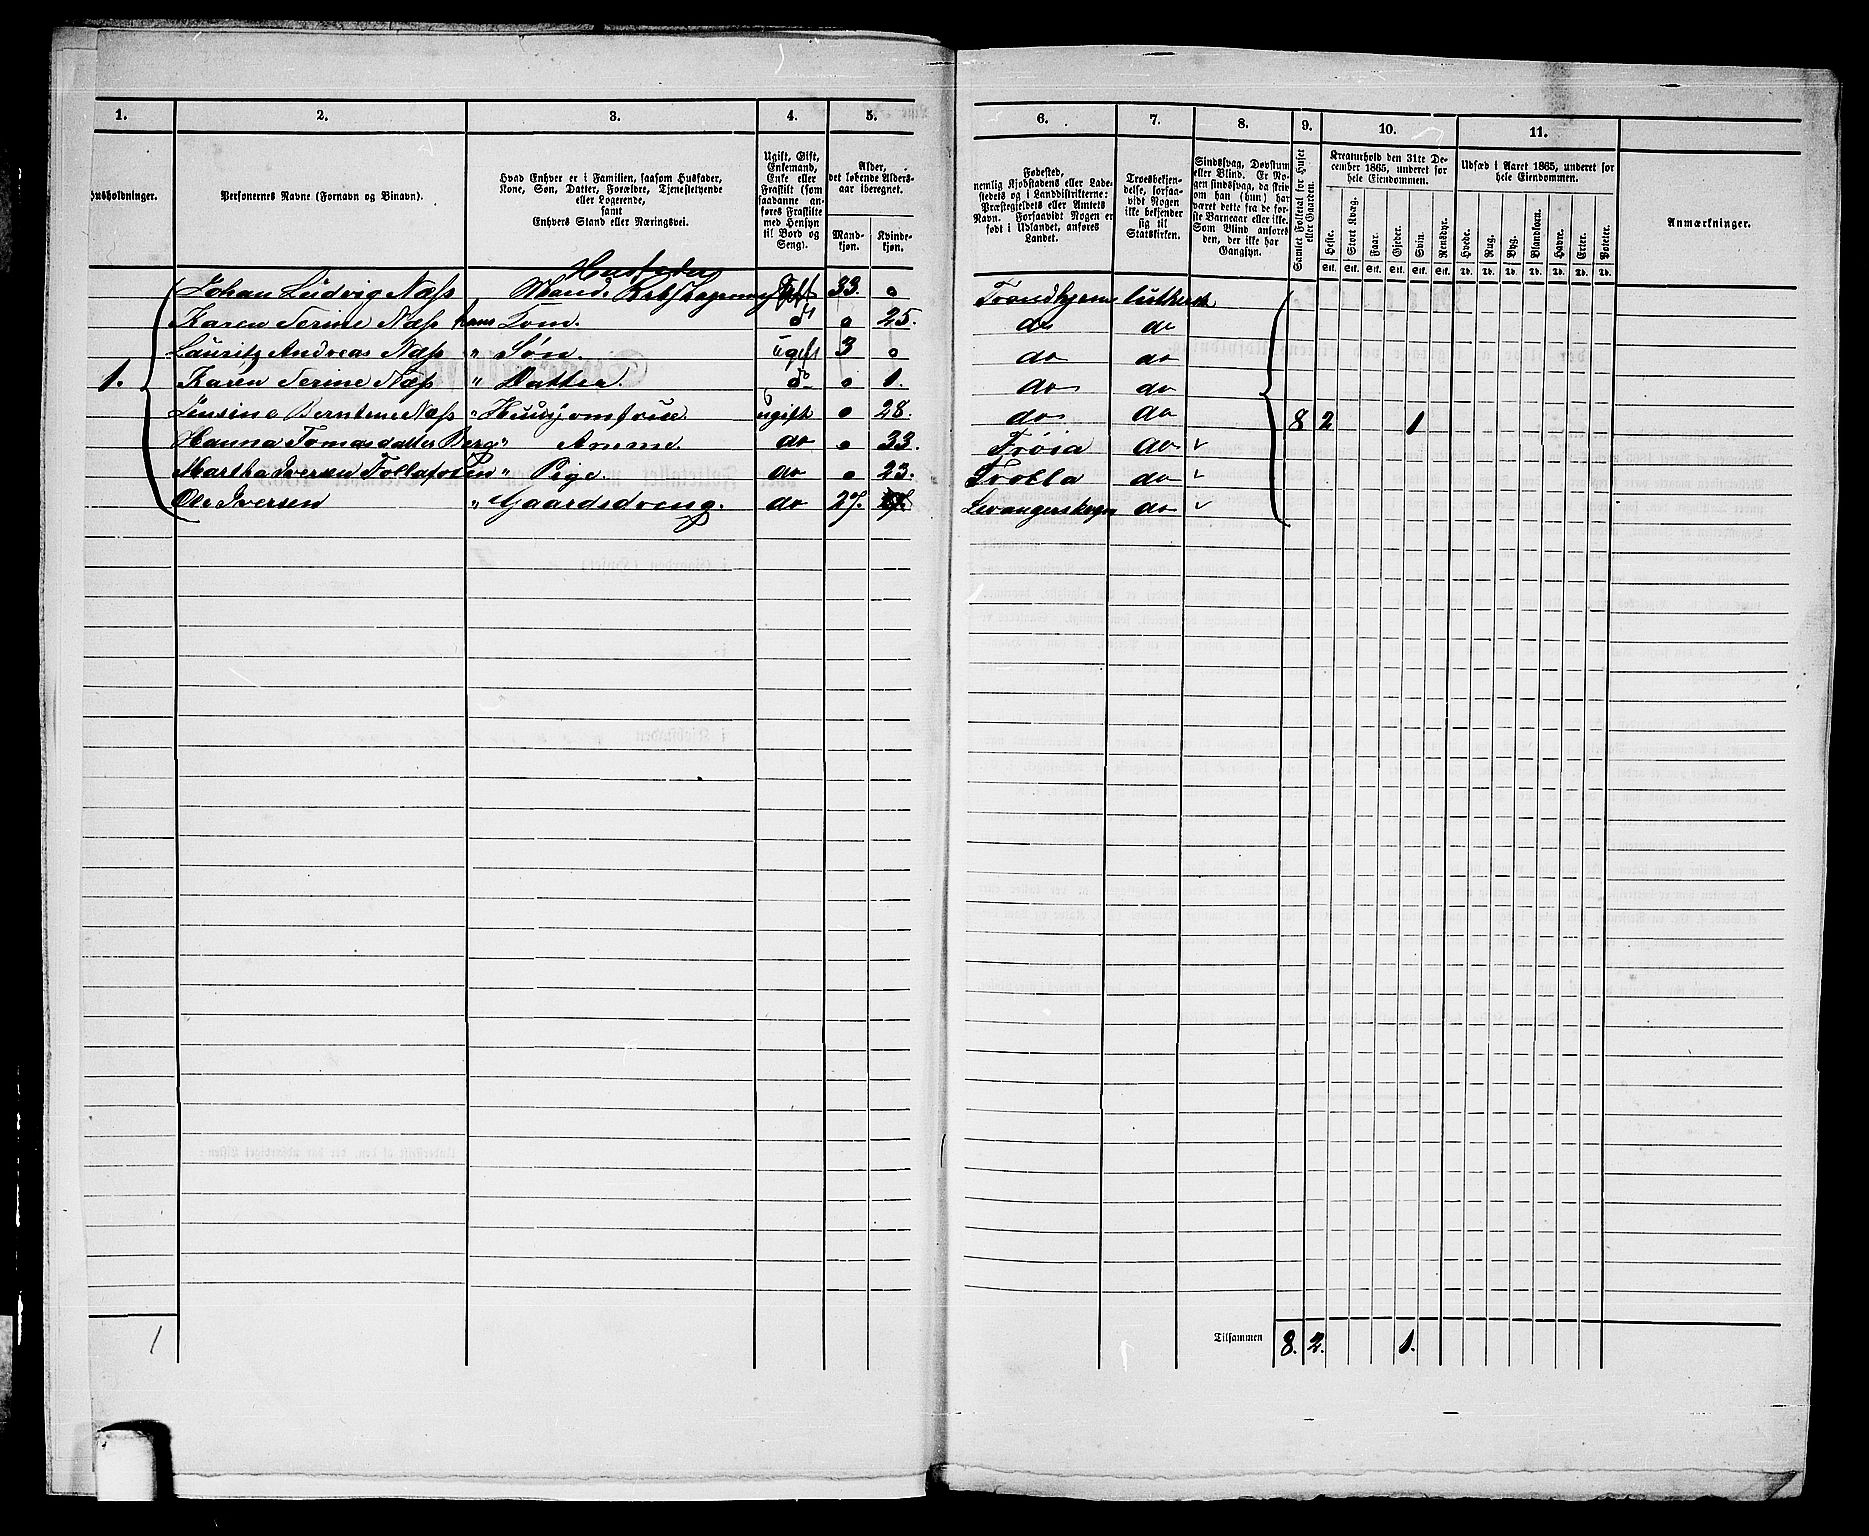 1. 2. 3. 4. 5. 6. 7. 8. 9. 10. 11.
Husholdninger.
Personernes Navne (Fornavn og Binavn).
Hvad Enhver er i Familien, saasom Husfader,
Kone, Søn, Datter, Forældre, Tjenestetyende
eller Logerende,
samt
Enhvers Stand eller Næringsvei.
Ugift, Gift,
Enkemand,
Enke eller
Fraskilt (som
saadanne an-
føres Fraskilte
med Hensyn
til Bord og
Seng).
Alder,
det løbende Alders-
aar iberegnet.
Mand-
kjøn.
Kvinde-
kjøn.
Fødested,
nemlig Kjøbstadens eller Lade-
stedets og i Landdistrikterne:
Præstegjeldets eller Amtets
Navn. Forsaavidt Nogen er
født i Udlandet, anføres
Landet.
Troesbekjen-
delse, forsaa-
vidt Nogen
ikke bekjender
sig til
Statskirken.
Sindssvag, Døvstum
eller Blind. Er No-
gen sindssvag, da skriv
om han (hun) har
været dette fra de før-
ste Barneaar eller ikke.
Som Blind anføres
den, der ikke har
Gangsyn.
Samlet Folketal for Huset
eller Gaarden.
Kreaturhold den 31te De-
cember 1865, underet for
hele Eiendommen.
Heste. Stort Kvæg. Faar. Gjeder. Svin. Rensdyr.
Stk. Stk. Stk. Stk. Stk. Stk.
Udsæd i Aaret 1865, underet for
hele Eiendommen.
Hvede. Rug. Byg. Blandkorn. Havre. Erter. Poteter.
Td. Td. Td. Td. Td. Td. Td.
Anmærkninger.
Husfader
Johan Ludvig Næss Mand. Gift 33. 0 Trondhjem luthersk
Karen Serine Næss hans Kone. do 0 25. do do
Lauritz Andreas Næss " Søn. ugift 3 0 do do
1. Karen Serine Næss " Datter. do 0 1. do do
Berntine Næss " Huusjomfrue. ugift 0 28. do do 8 2 1
Hanna Tomasdatter Berg " Amme. do 0 33. Frøia do
Martha Iversen " Pige. do 0 23. do
Ole Iversen " Gaardsdreng. do 27. do
1
Tilsammen 8. 2. 1.